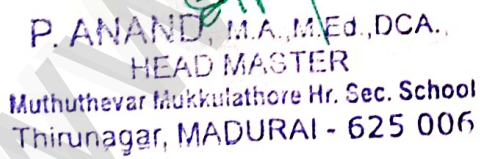 P. ANAND, M.A.,M.Ed.,DCA.,
HEAD MASTER
Muthuthevar Mukkulathore Hr. Sec. School
Thirunagar, MADURAI - 625 006